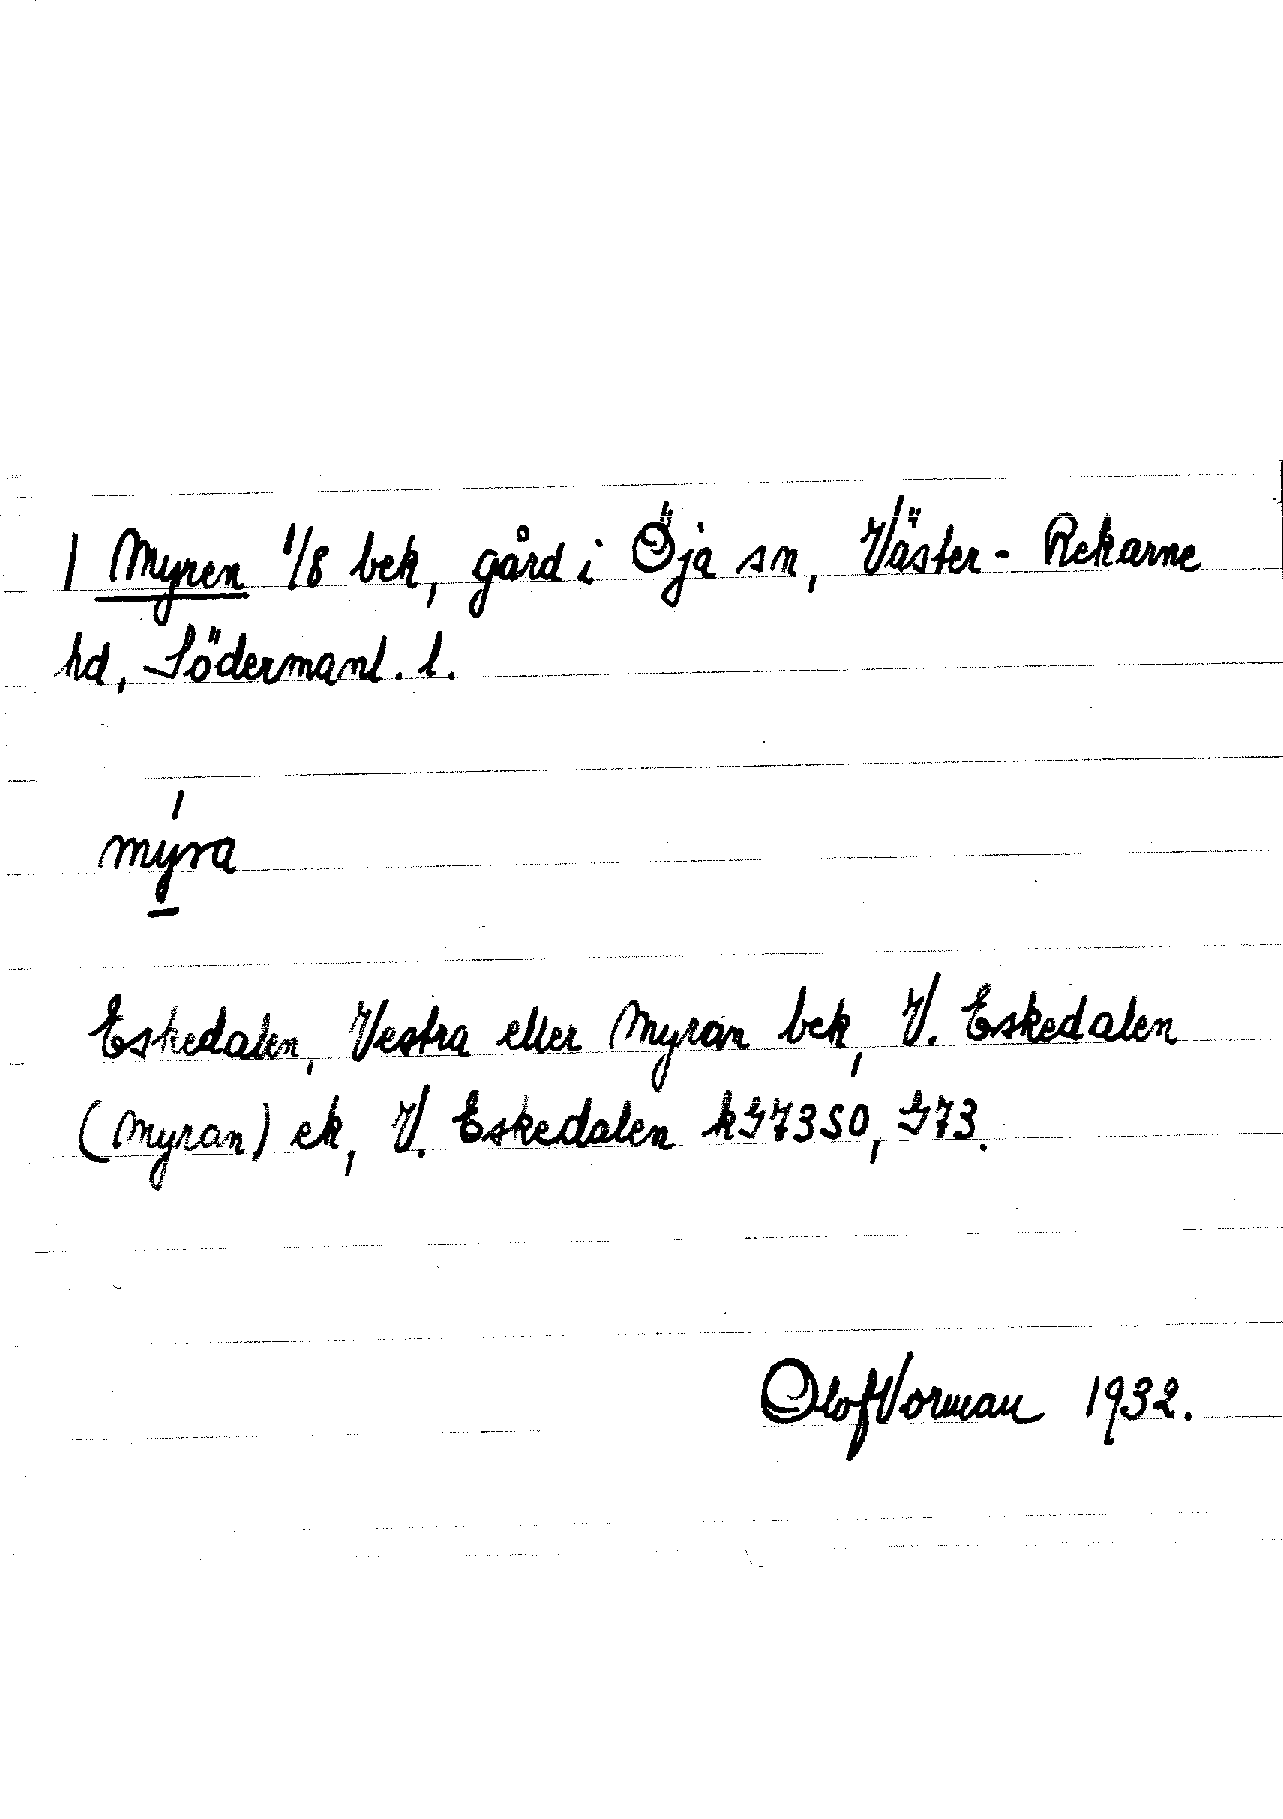 1 Myren 1/8 bek, gård i Öja sn, Väster-Rekarne
hd, Södermanl. l.
myra
Eskedalen, Vestra eller Myran bek, V. Eskedalen
(Myran) ek, V. Eskedalen kG7350, G73.
Olof Vorman 1932.